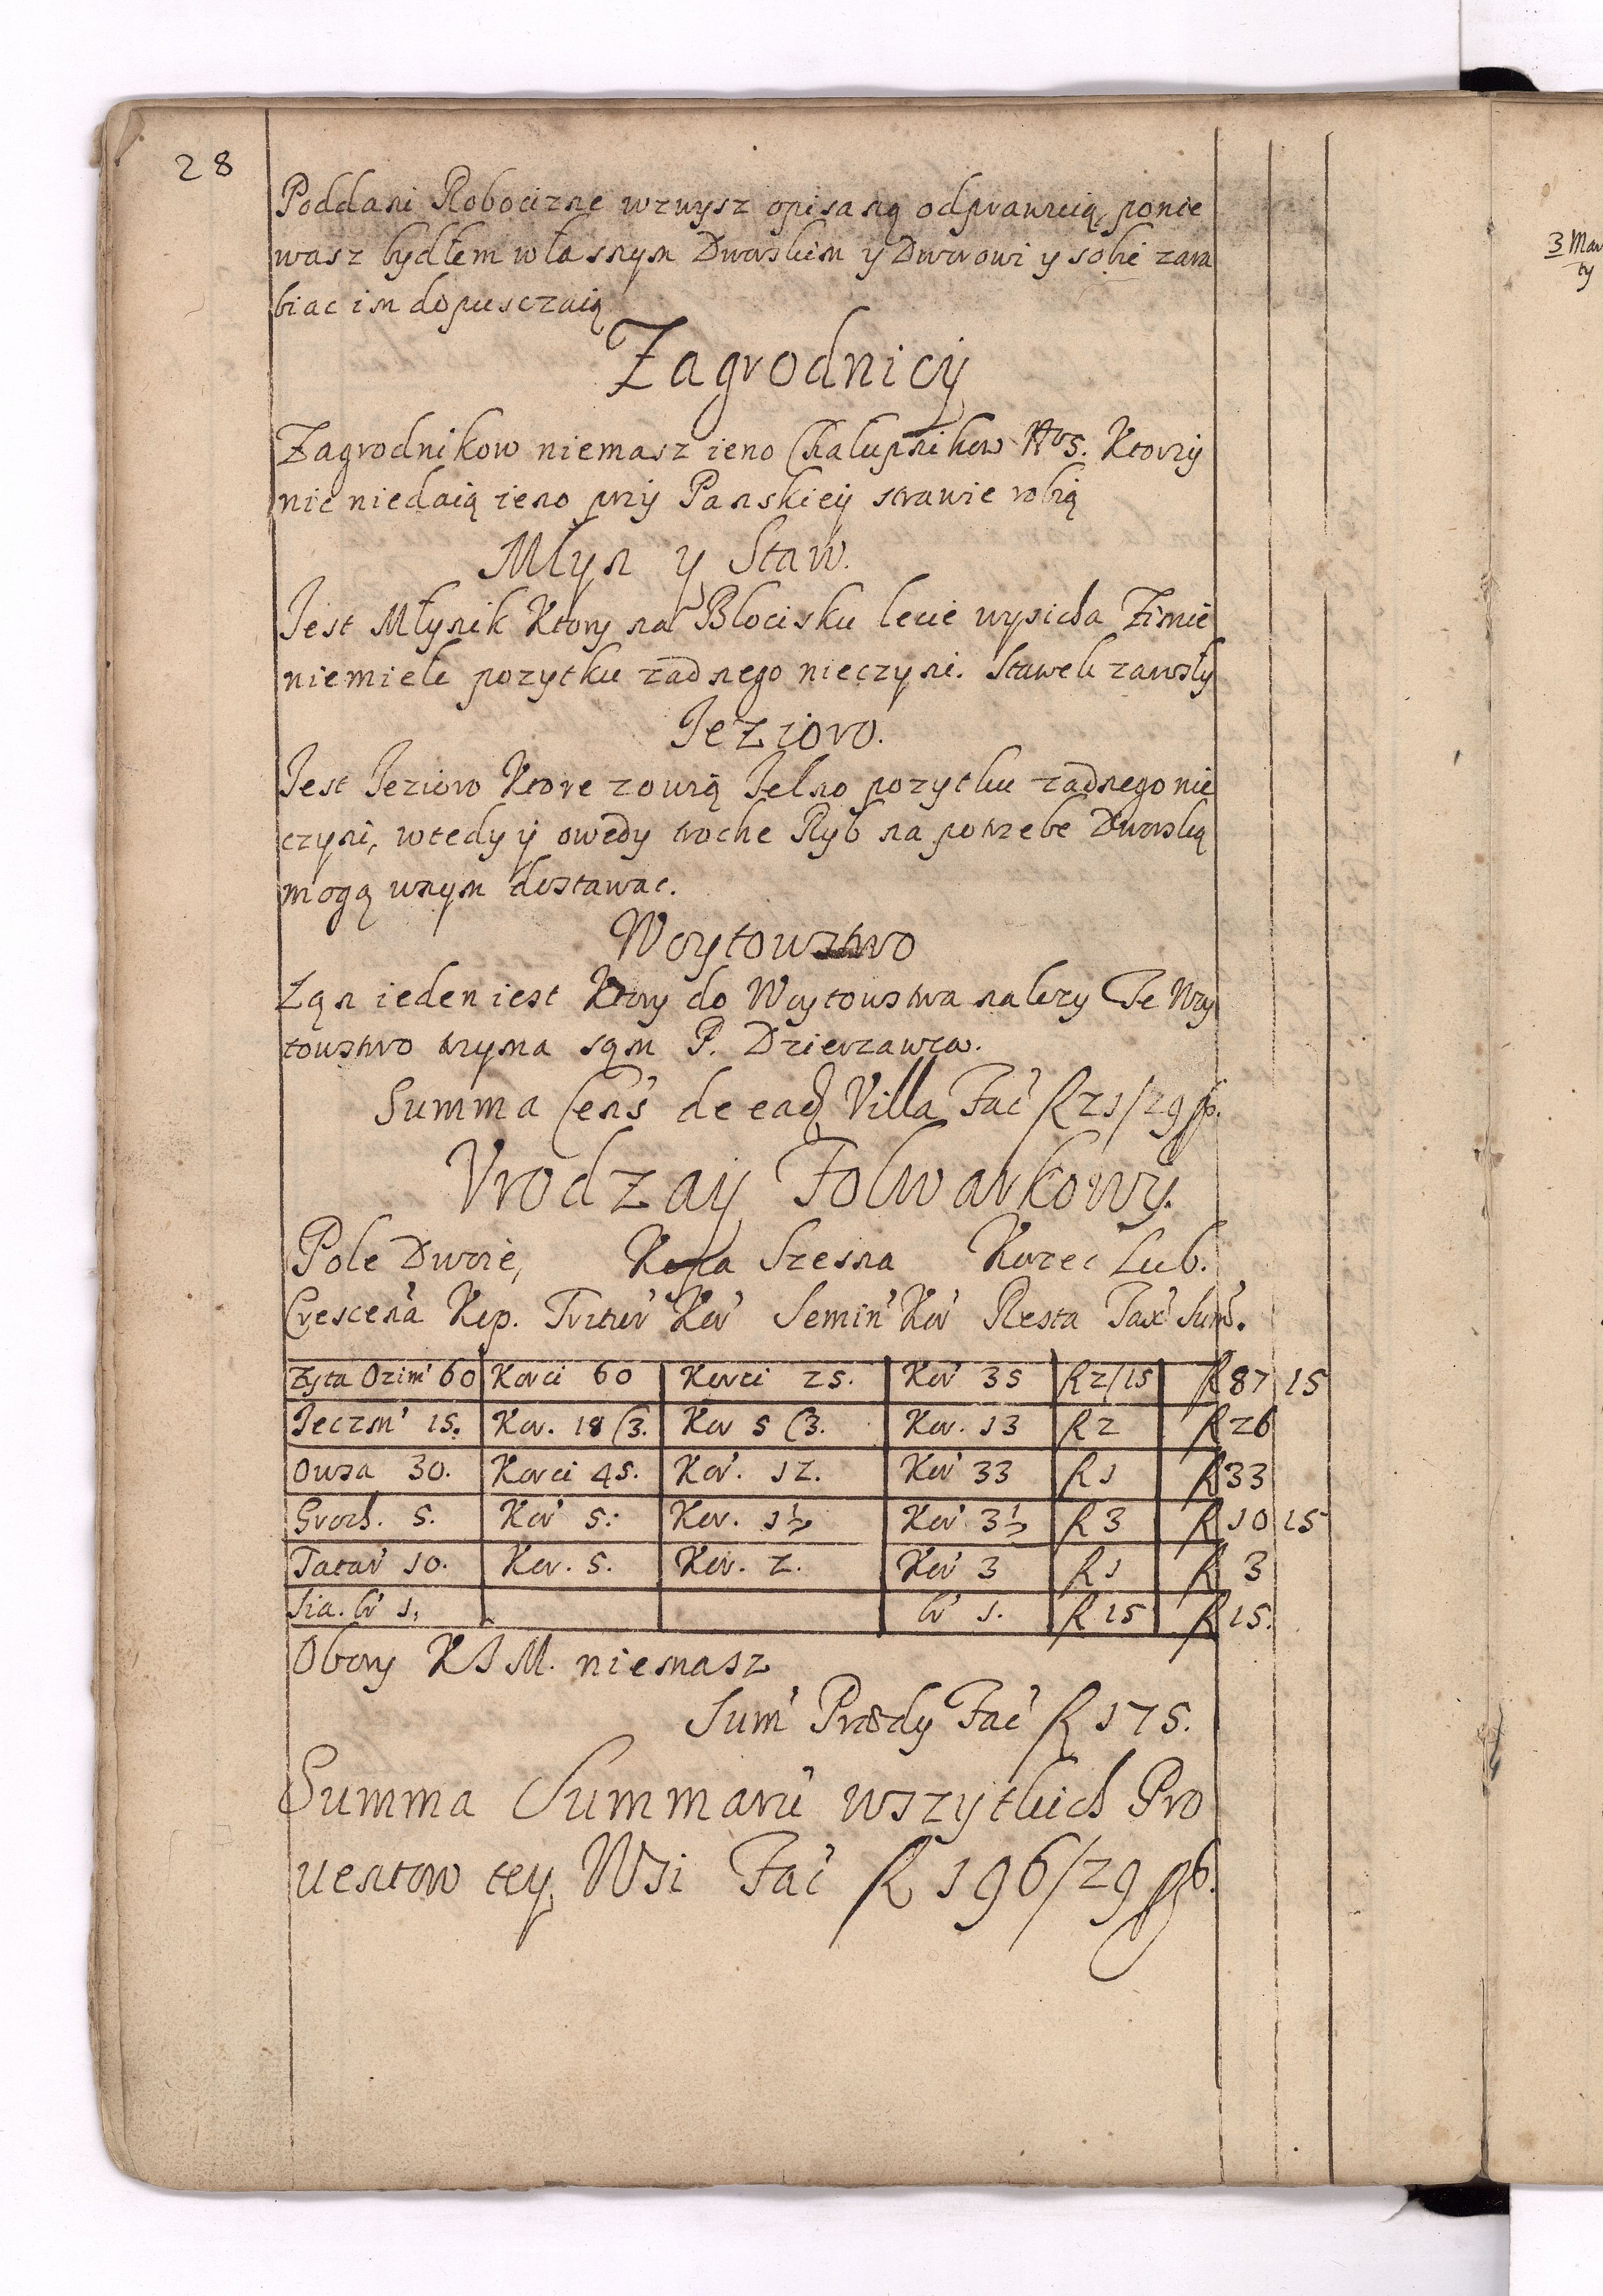 28
Poddani Robocizne wzwysz opisaną odprawuią, ponie
wasz bydłem własnym Dworskim y Dworowi y sobie zara
biac im dopusczaią
Zagrodnicÿ
Zagrodnikow niemasz ieno Chalupnikow Nro 5. Ktorzÿ
nic niedaią ieno przÿ Panskieÿ strawie robią
Młyn y Staw.
Jest Młynik Ktory na Blocisku lecie wysicha Zimie
niemiele pozytku zadnego nieczyni. Stawek zarosły
Jezioro.
Jest Jezioro Ktore zowią Jelno pozytku zadnego nie
czyni, wtedy ÿ owedy troche Ryb na potrzebe Dworską
mogą wnym dostawac.
Woytowstwo
Łąn ieden iest Ktory do Woytowstwa nalezy Te Woy
towstwo trzyma sąm P. Dzierzawca.
Summa Cens' de ead Villa Fac' fl 21/29
Vrodzaÿ Folwarkowÿ.
Pole Dwoie, Kopa Szesna Korzec Lub.
Crescen'a Kop. Tritur' Kor' Semin' Kor' Resta Tax' Sum'.
Zyta Ozim' 60 Korci 60 Korci 25. Kor' 35 fl 2/15 fl 87 15
Jeczm' 15. Kor. 18 C3. Kor 5 C3. Kor. 13 fl 2 fl 26
Owsa 30. Korci 45. Kor'. 12. Kor' 33 fl 1 fl 33
Groch. 5. Kor' 5. Kor. 1½ Kor' 3½ fl 3 fl 10 15
Tatar' 10. Kor. 5. Kor. 2. Kor' 3 fl 1 fl 3
Sia. 1. 1. fl 15 fl 15.
Obory KJM. niemasz
Sum' Prædy Fac' fl 175.
Summa Summaru' wszytkich Pro
uentow tey Wsi Fac' fl 196/29
3 Mar
ty